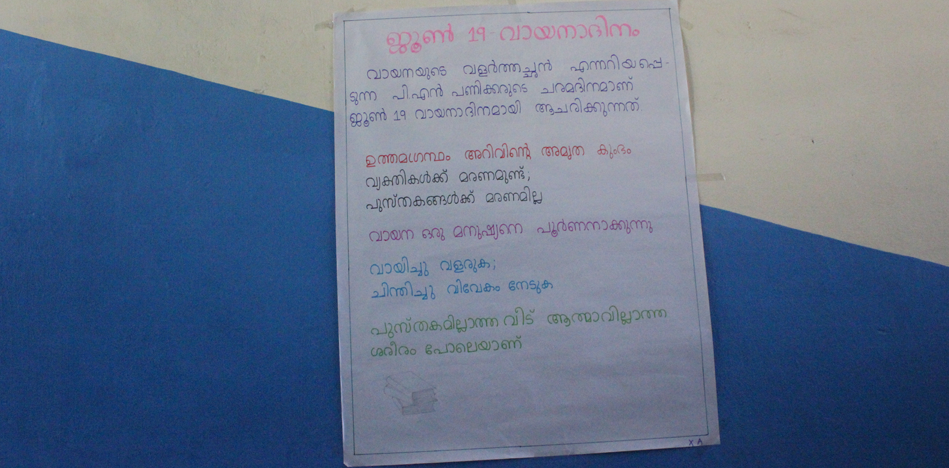 ജൂൺ 19 വായനാദിനം
വായനയുടെ വളർത്തച്ഛൻ എന്നറിയപ്പെ-
ടുന്ന പി എൻ പണിക്കരുടെ ചരമദിനമാണ്
ജൂൺ 19 വായനാദിനമായി ആചരിക്കുന്നത്.
ഉത്തമഗ്രന്ഥം അറിവിന്റെ അമൃത കുംഭം
വ്യക്തികൾക്ക് മരണമുണ്ട്;
പുസ്തകങ്ങൾക്ക് മരണമില്ല
വായന ഒരു മനുഷ്യനെ പൂർണനാക്കുന്നു
വായിച്ചു വളരുക;
ചിന്തിച്ചു വിവേകം നേടുക
പുസ്തകമില്ലാത്ത വീട് ആത്മാവില്ലാത്ത
ശരീരം പോലെയാണ്
X A